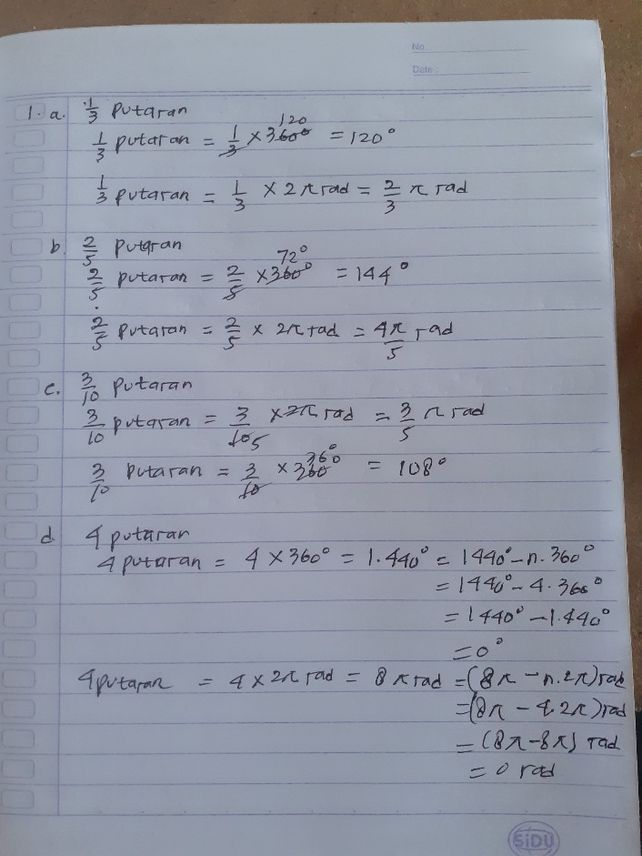 No.
Date :
1. a. 1/3 putaran
1/3 putaran = 1/3 × 360° 120 = 120°
1/3 putaran = 1/3 × 2π rad = 2/3 π rad
b. 2/5 putaran
2/5 putaran = 2/5 × 360° 72° = 144°
2/5 putaran = 2/5 × 2π rad = 4π/5 rad
c. 3/10 putaran
3/10 putaran = 3/10 5 × 2π rad = 3/5 π rad
3/10 putaran = 3/10 × 360 36° = 108°
d 4 putaran
4 putaran = 4 × 360° = 1.440° = 1440° - n. 360°
= 1440° - 4. 360°
= 1440° - 1.440°
= 0°
4 putaran = 4 × 2π rad = 8π rad = (8π - n. 2π) rad
= (8π - 4.2π) rad
= (8π - 8π) rad
= 0 rad
SiDU